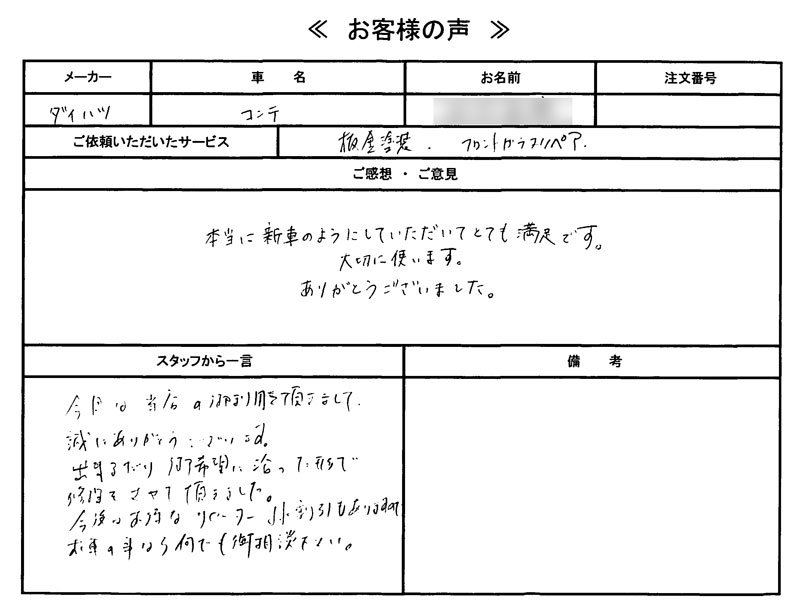 ≪ お客様の声 ≫
メーカー 車 名 お名前 注文番号
ダイハツ コンテ
ご依頼いただいたサービス 板金塗装. フロントガラスリペア.
ご感想・ご意見
本当に新車のようにしていただいてとても満足です。
大切に使います。
ありがとうございました。
スタッフから一言 備 考
今回は当店の御利用を頂きまして.
誠にありがとうございます。
出来るだけ御希望に沿った形で
修理をさせて頂きました。
今後はお得なリピーター 割引もありますので
お車の事なら何でも御相談下さい。